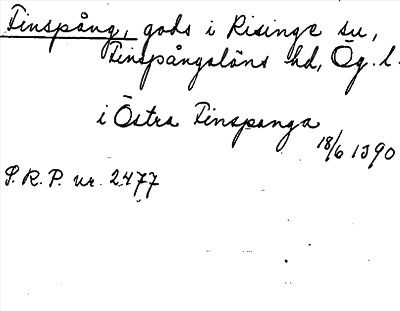 Finspång, gods i Risinge su,
Finspångaläns hd, Ög. l.
i Östra Finspanga
18/6 1390
S. R. P. nr. 2477